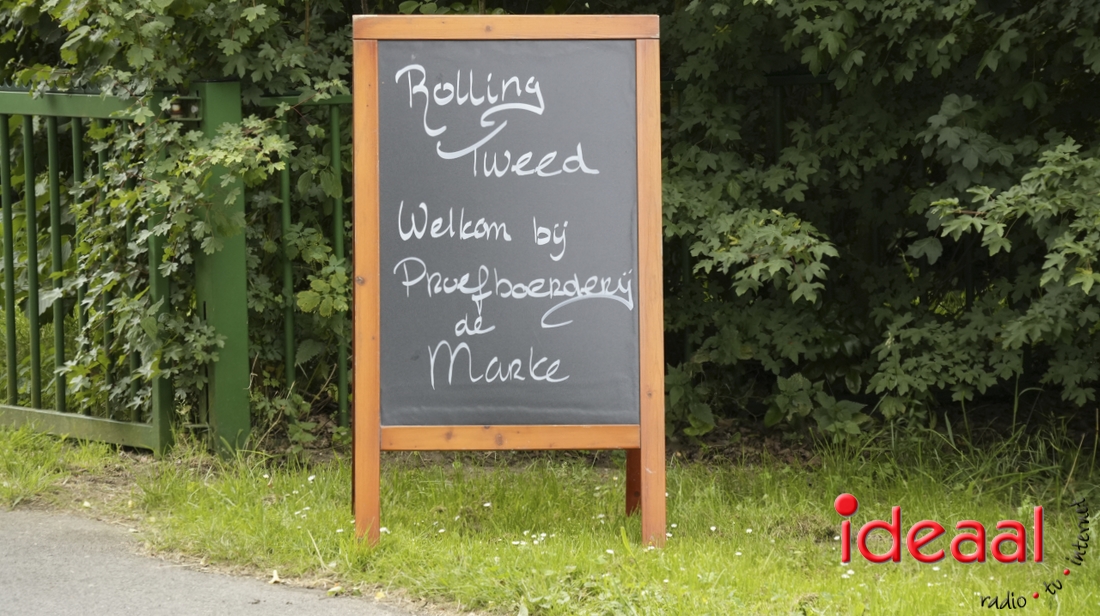 Rolling
Tweed
Welkom bij
Proefboerderij
de
Marke
ideaal
radio • tv • internet